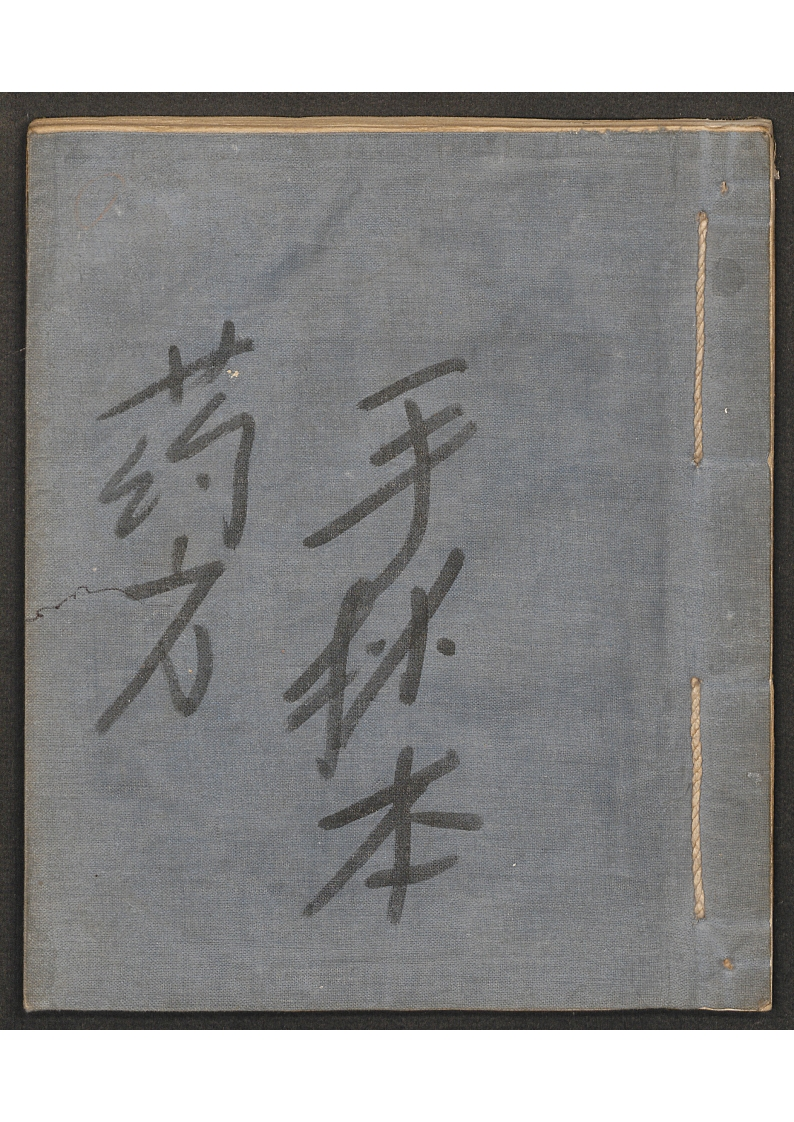 手抄本
药方